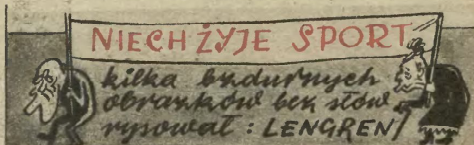 NIECH ŻYJE SPORT
kilka bzdurnych
obrazków bez słów
rysował: LENGREN